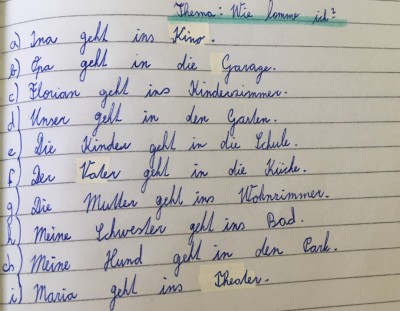 Thema: Wie komme ich?
a) Ina geht ins Kino.
b) Opa geht in die Garage.
c) Florian geht ins Kinderzimmer.
d) Unser geht in den Garten.
e) Die Kinder geht in die Schule.
f) Der Vater geht in die Küche.
g) Die Mutter geht ins Wohnzimmer.
h) Meine Schwester geht ins Bad.
ch) Meine Hund geht in den Park.
i) Maria geht ins Theater.